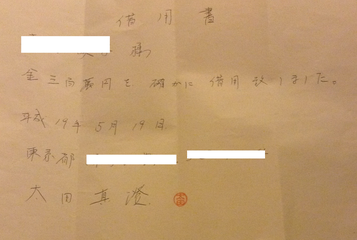 借用書
様
金三百萬円を確かに借用致しました。
平成19年5月19日
東京都
大田真澄